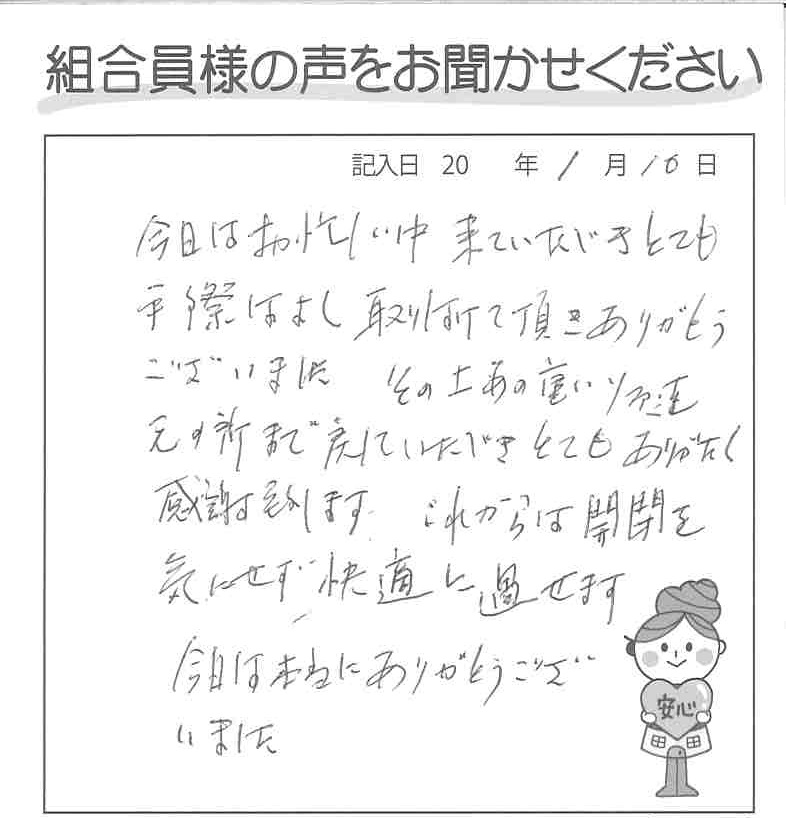 組合員様の声をお聞かせください
記入日 20 年 1月 10日
今日はお忙しい中 来ていただきとても
手際はよし 取り付けて頂きありがとう
ございました その上あの重いソファ迄
元の所まで戻していただきとてもありがたく
感謝致します。これからは開閉を
気にせず快適に過せます
今日は本当にありがとうござ
いました
安心